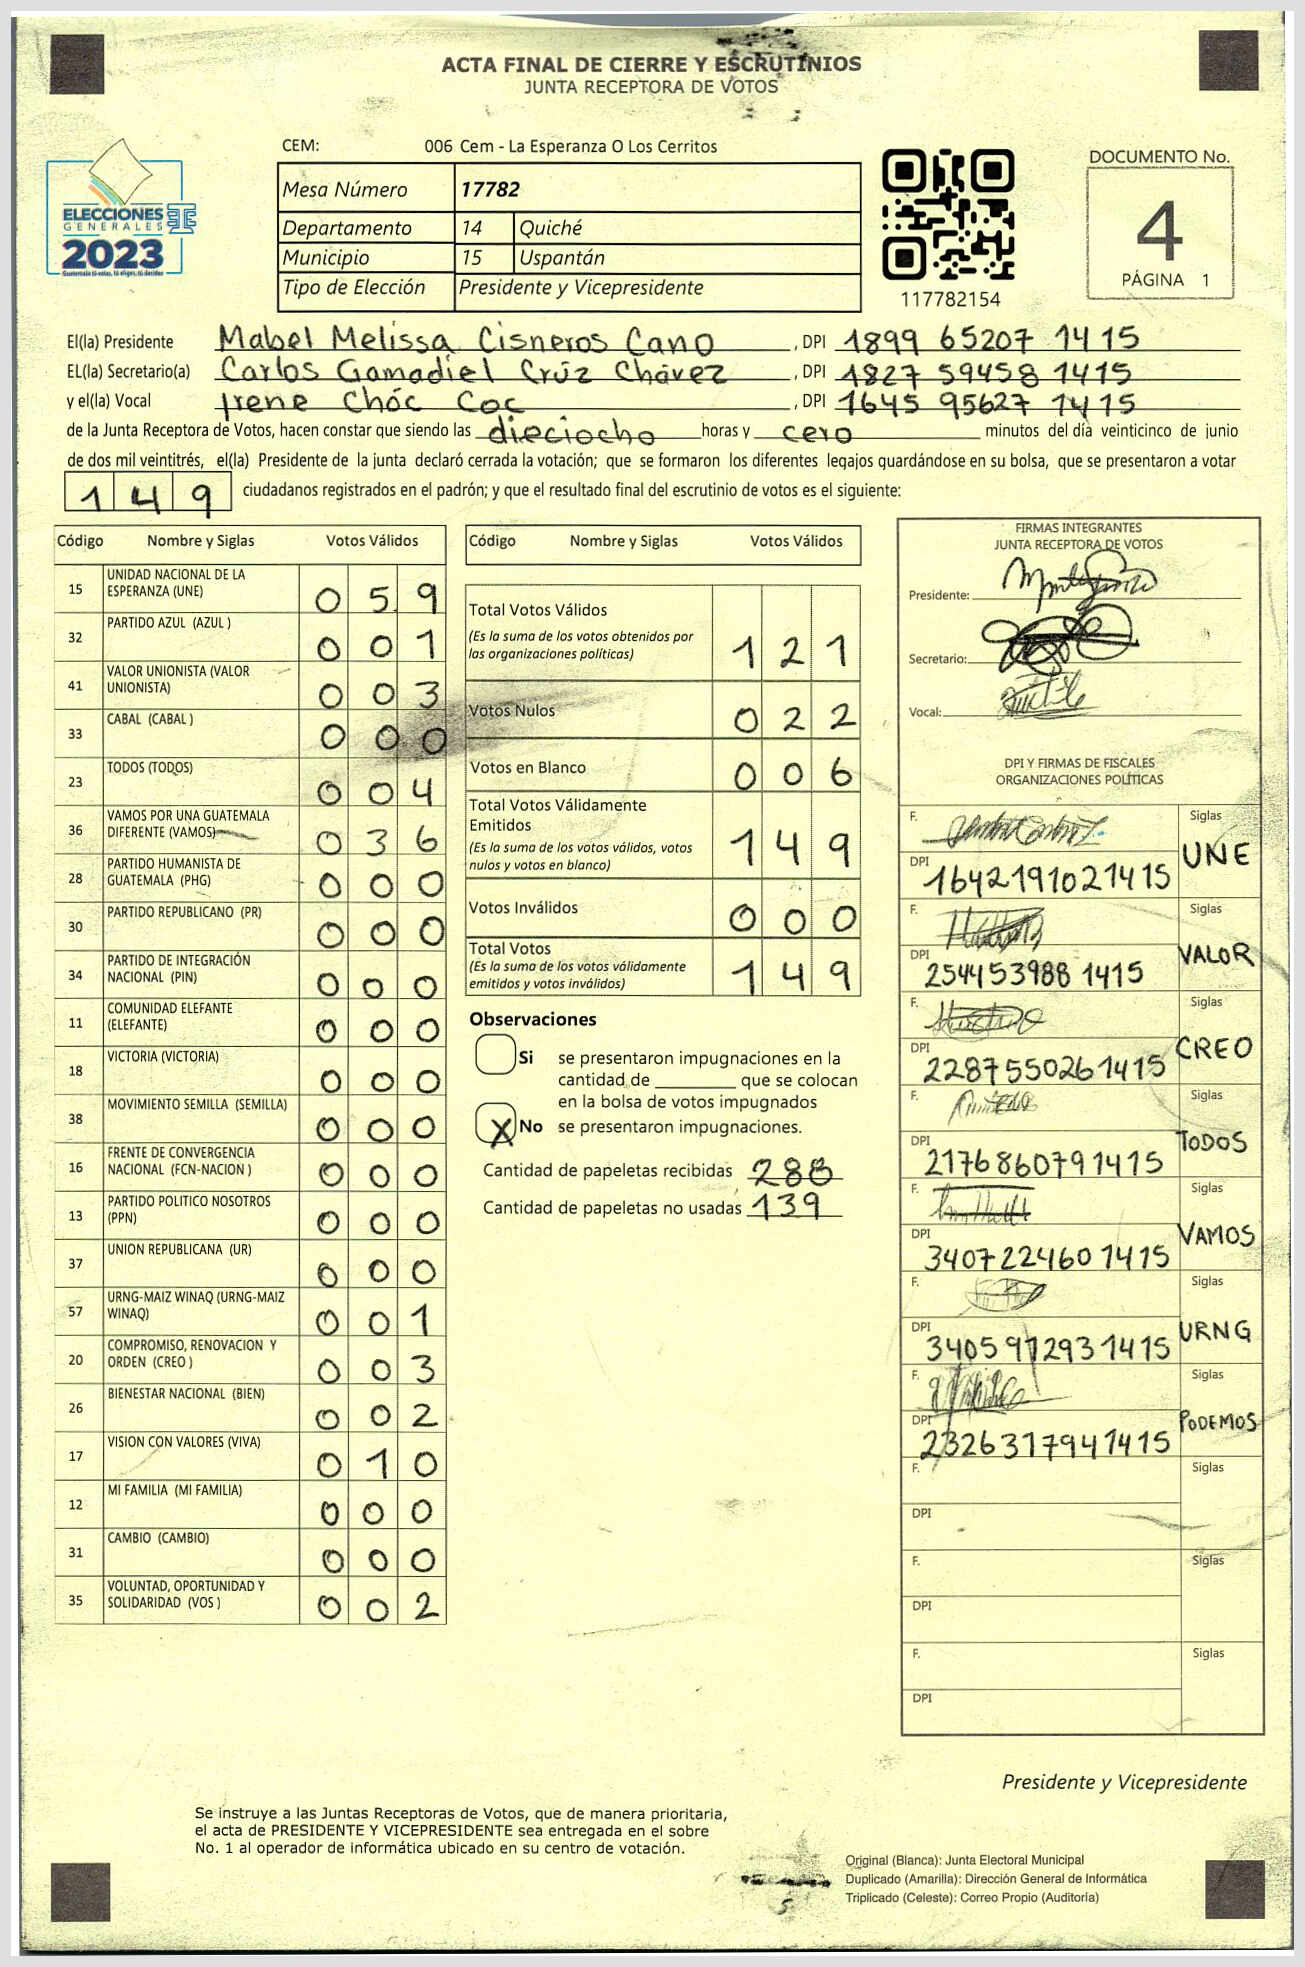 ACTA FINAL DE CIERRE Y ESCRUTINIOS
JUNTA RECEPTORA DE VOTOS
CEM: 006 Cem - La Esperanza O Los Cerritos
Mesa Número 17782
Departamento 14 Quiché
Municipio 15 Uspantán
Tipo de Elección Presidente y Vicepresidente
ELECCIONES
GENERALES
2023
Guatemala tú votas, tú eliges, tú decides
117782154
DOCUMENTO No.
4
PÁGINA 1
El(la) Presidente Mabel Melissa Cisneros Cano , DPI 1899 65207 1415
EL(la) Secretario(a) Carlos Gamadiel Crúz Chávez , DPI 1827 59458 1415
y el(la) Vocal Irene Chóc Coc , DPI 1645 95627 1415
de la Junta Receptora de Votos, hacen constar que siendo las dieciocho horas y cero minutos del día veinticinco de junio
de dos mil veintitrés, el(la) Presidente de la junta declaró cerrada la votación; que se formaron los diferentes legajos guardándose en su bolsa, que se presentaron a votar
149 ciudadanos registrados en el padrón; y que el resultado final del escrutinio de votos es el siguiente:
Código Nombre y Siglas Votos Válidos
15 UNIDAD NACIONAL DE LA
ESPERANZA (UNE) 059
32 PARTIDO AZUL (AZUL ) 001
41 VALOR UNIONISTA (VALOR
UNIONISTA) 003
33 CABAL (CABAL ) 000
23 TODOS (TODOS) 004
36 VAMOS POR UNA GUATEMALA
DIFERENTE (VAMOS) 036
28 PARTIDO HUMANISTA DE
GUATEMALA (PHG) 000
30 PARTIDO REPUBLICANO (PR) 000
34 PARTIDO DE INTEGRACIÓN
NACIONAL (PIN) 000
11 COMUNIDAD ELEFANTE
(ELEFANTE) 000
18 VICTORIA (VICTORIA) 000
38 MOVIMIENTO SEMILLA (SEMILLA) 000
16 FRENTE DE CONVERGENCIA
NACIONAL (FCN-NACION ) 000
13 PARTIDO POLITICO NOSOTROS
(PPN) 000
37 UNION REPUBLICANA (UR) 000
57 URNG-MAIZ WINAQ (URNG-MAIZ
WINAQ) 001
20 COMPROMISO, RENOVACION Y
ORDEN (CREO ) 003
26 BIENESTAR NACIONAL (BIEN) 002
17 VISION CON VALORES (VIVA) 010
12 MI FAMILIA (MI FAMILIA) 000
31 CAMBIO (CAMBIO) 000
35 VOLUNTAD, OPORTUNIDAD Y
SOLIDARIDAD (VOS ) 002
Código Nombre y Siglas Votos Válidos
Total Votos Válidos
(Es la suma de los votos obtenidos por
las organizaciones políticas) 121
Votos Nulos 022
Votos en Blanco 006
Total Votos Válidamente
Emitidos
(Es la suma de los votos válidos, votos
nulos y votos en blanco) 149
Votos Inválidos 000
Total Votos
(Es la suma de los votos válidamente
emitidos y votos inválidos) 149
Observaciones
Si se presentaron impugnaciones en la
cantidad de ________ que se colocan
en la bolsa de votos impugnados
X No se presentaron impugnaciones.
Cantidad de papeletas recibidas 288
Cantidad de papeletas no usadas 139
FIRMAS INTEGRANTES
JUNTA RECEPTORA DE VOTOS
Presidente:
Secretario:
Vocal:
DPI Y FIRMAS DE FISCALES
ORGANIZACIONES POLÍTICAS
F. Siglas
DPI 1642191021415 UNE
F. Siglas
DPI 254453988 1415 VALOR
F. Siglas
DPI 2287550261415 CREO
F. Siglas
DPI 2176860791415 TODOS
F. Siglas
DPI 3407224601415 VAMOS
F. Siglas
DPI 3405972931415 URNG
F. Siglas
DPI 2326317941415 PODEMOS
F. Siglas
DPI
F. Siglas
DPI
F. Siglas
DPI
Presidente y Vicepresidente
Se instruye a las Juntas Receptoras de Votos, que de manera prioritaria,
el acta de PRESIDENTE Y VICEPRESIDENTE sea entregada en el sobre
No. 1 al operador de informática ubicado en su centro de votación.
Original (Blanca): Junta Electoral Municipal
Duplicado (Amarilla): Dirección General de Informática
Triplicado (Celeste): Correo Propio (Auditoría)